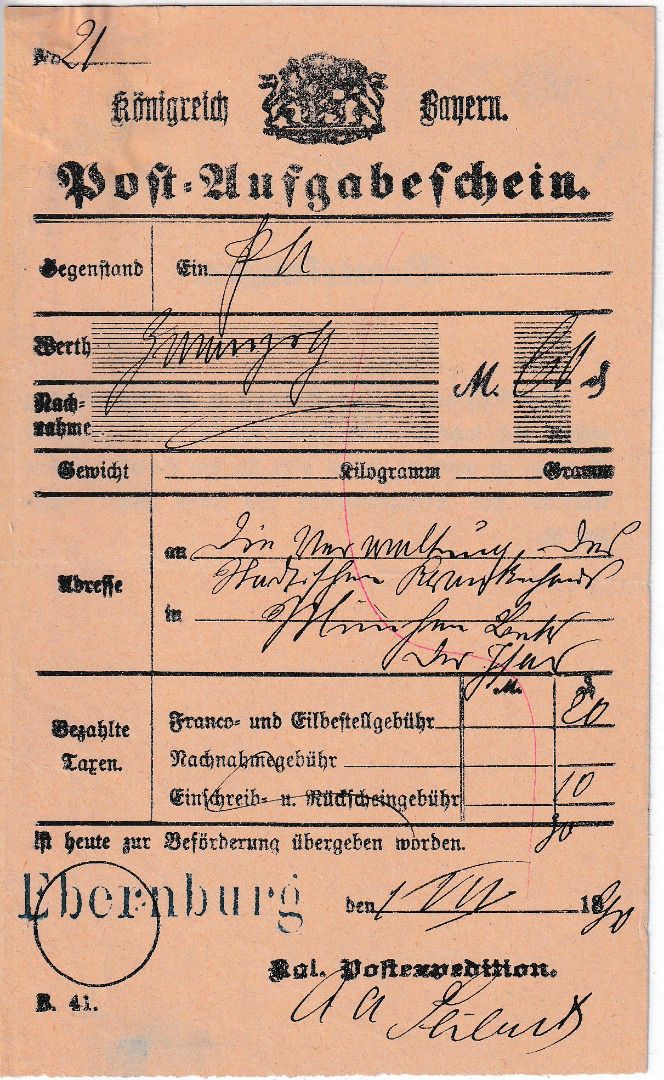 No 21
Königreich Bayern.
Post-Aufgabeschein.
Gegenstand Ein
Werth
Nach-
nahme
M. ₰
Gewicht Kilogramm Gramm
Adresse
an die Verwaltung des
städtischen Krankenhaus
in München
der Isar
Bezahlte
Taxen.
M. ₰
Franco- und Eilbestellgebühr 20
Nachnahmegebühr
Einschreib- u. Rückscheingebühr 10
30
ist heute zur Beförderung übergeben worden.
Ebernburg
den 1 VII 1890
Kgl. Postexpedition.
R. 41.